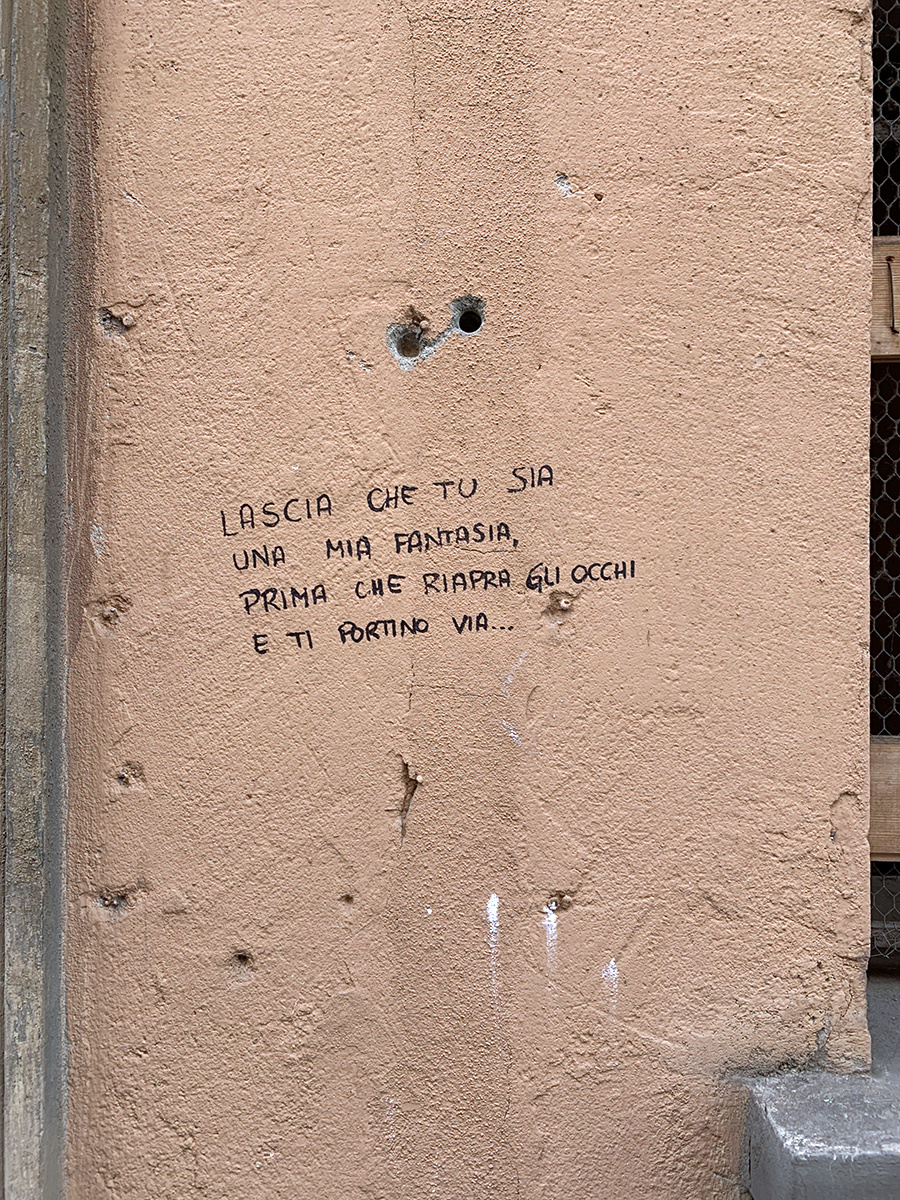 LASCIA CHE TU SIA
UNA MIA FANTASIA,
PRIMA CHE RIAPRA GLI OCCHI
E TI PORTINO VIA...